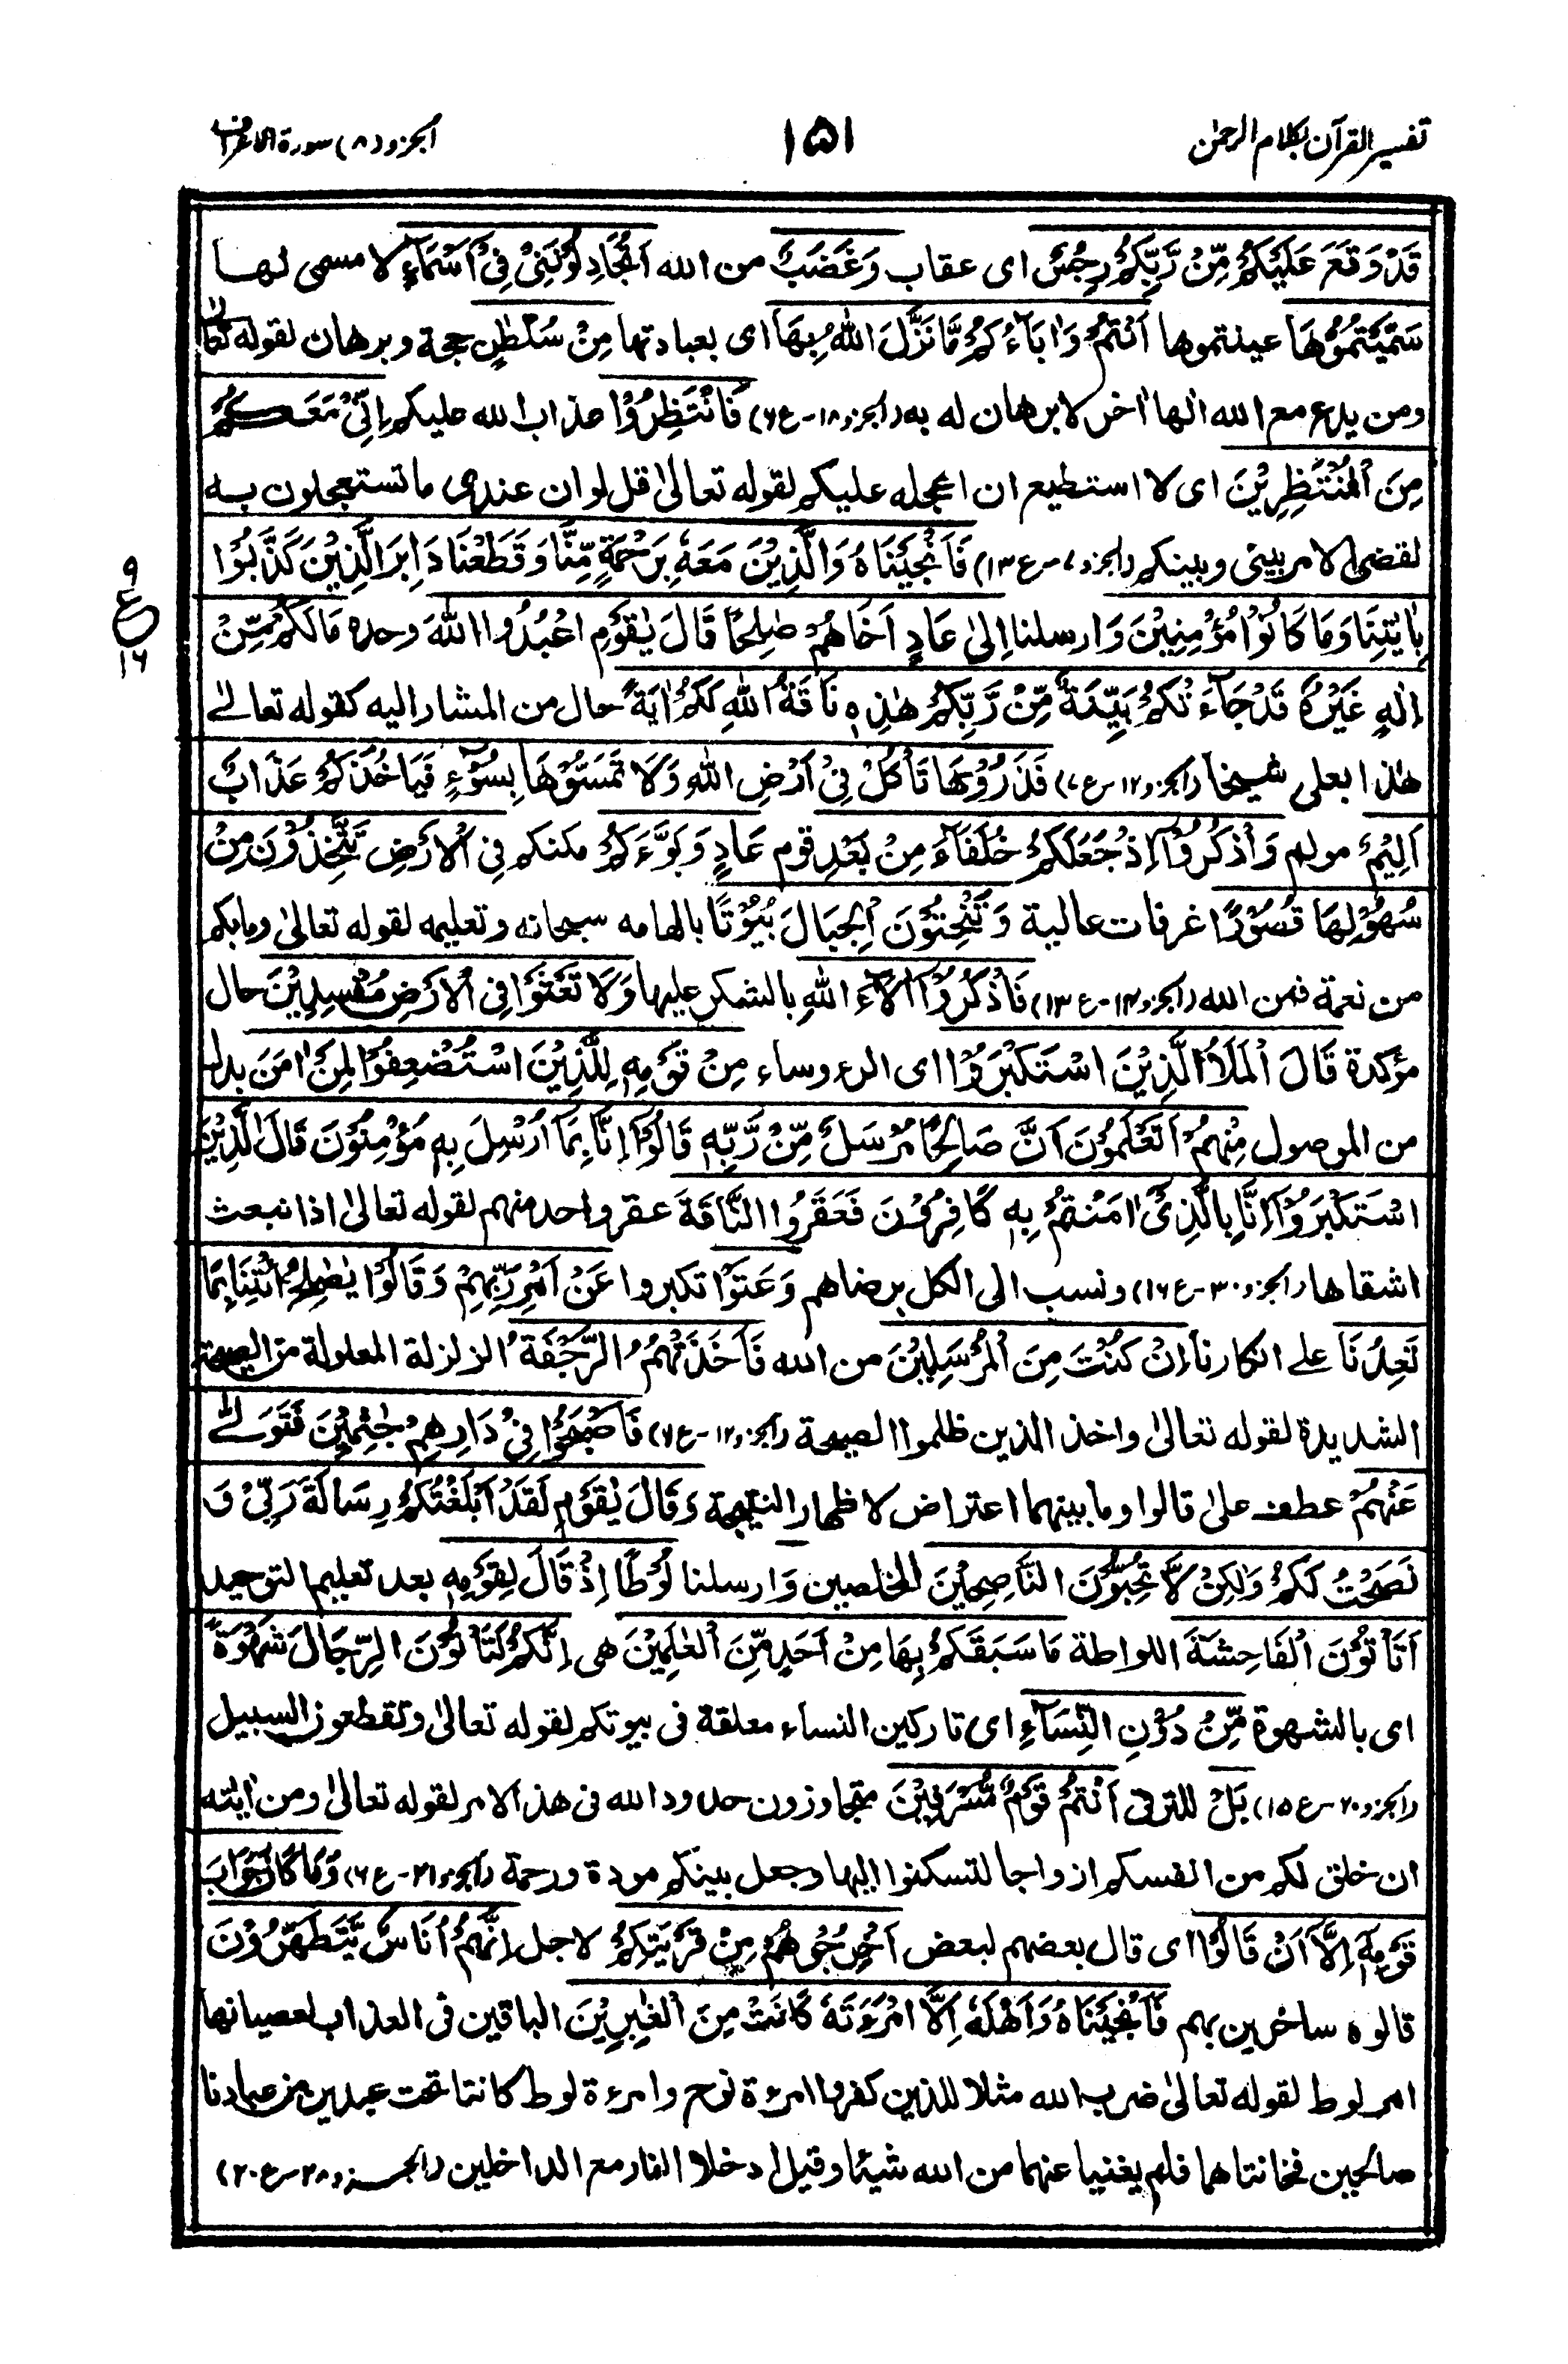 تفسير القرآن بكلام الرحمن
١٥١
الجزو (٨) سورة الاعراف
قَدْ وَقَعَ عَلَيْكُمْ مِّنْ رَّبِّكُمْ رِجْسٌ اى عقاب وَغَضَبٌ من الله اَتُجَادِلُوْنَنِيْ فِيْ اَسْمَآءٍ لا مسمى لها
سَمَّيْتُمُوْهَا عينتموها اَنْتُمْ وَاٰبَآءُكُمْ مَّا نَزَّلَ اللهُ بِهَا اى بعبادتها مِنْ سُلْطٰنٍ حجة وبرهان لقوله تعالىٰ
ومن يدع مع الله الٰها اٰخر لا برهان له به (الجزو ١٨-ع٦) فَانْتَظِرُوْا عذاب الله عليكم اِنِّيْ مَعَكُمْ
مِنَ الْمُنْتَظِرِيْنَ اى لا استطيع ان اعجله عليكم لقوله تعالىٰ قل لو ان عندى ما تستعجلون به
لقضى الامر بينى وبينكم (الجزو ٧-ع١٣) فَاَنْجَيْنَاهُ وَالَّذِيْنَ مَعَهٗ بِرَحْمَةٍ مِّنَّا وَقَطَعْنَا دَابِرَ الَّذِيْنَ كَذَّبُوْا
بِاٰيٰتِنَا وَمَا كَانُوْا مُؤْمِنِيْنَ وَارسلنا اِلىٰ عَادٍ اَخَاهُمْ صٰلِحًا قَالَ يٰقَوْمِ اعْبُدُوا اللهَ وحده مَا لَكُمْ مِّنْ
اِلٰهٍ غَيْرُهٗ قَدْ جَآءَتْكُمْ بَيِّنَةٌ مِّنْ رَّبِّكُمْ هٰذِهٖ نَاقَةُ اللهِ لَكُمْ اٰيَةً حال من المشار اليه كقوله تعالىٰ
هٰذا بعلى شيخا (الجزو ١٢-ع٧) فَذَرُوْهَا تَأْكُلْ فِيْ اَرْضِ اللهِ وَلَا تَمَسُّوْهَا بِسُوْٓءٍ فَيَأْخُذَكُمْ عَذَابٌ
اَلِيْمٌ مولم وَاذْكُرُوْٓا اِذْ جَعَلَكُمْ خُلَفَآءَ مِنْ بَعْدِ قوم عَادٍ وَبَوَّءَكُمْ مكنكم فِي الْاَرْضِ تَتَّخِذُوْنَ مِنْ
سُهُوْلِهَا قُصُوْرًا غرفات عالية وَتَنْحِتُوْنَ الْجِبَالَ بُيُوْتًا بالهامه سبحانه وتعليمه لقوله تعالىٰ وما بكم
من نعمة فمن الله (الجزو ١٤-ع١٣) فَاذْكُرُوْٓا اٰلَآءَ اللهِ بالشكر عليها وَلَا تَعْثَوْا فِي الْاَرْضِ مُفْسِدِيْنَ حال
مؤكدة قَالَ الْمَلَاُ الَّذِيْنَ اسْتَكْبَرُوْٓا اى الرءوساء مِنْ قَوْمِهٖ لِلَّذِيْنَ اسْتُضْعِفُوْا لِمَنْ اٰمَنَ بدل
من الموصول مِنْهُمْ اَتَعْلَمُوْنَ اَنَّ صَالِحًا مُرْسَلٌ مِّنْ رَّبِّهٖ قَالُوْٓا اِنَّا بِمَآ اُرْسِلَ بِهٖ مُؤْمِنُوْنَ قَالَ الَّذِيْنَ
اسْتَكْبَرُوْٓا اِنَّا بِالَّذِيْٓ اٰمَنْتُمْ بِهٖ كَافِرُوْنَ فَعَقَرُوا النَّاقَةَ عقر واحد منهم لقوله تعالىٰ اذا نبعث
اشقاها (الجزو ٣٠-ع١٦) ونسب الى الكل برضاهم وَعَتَوْا تكبروا عَنْ اَمْرِ رَبِّهِمْ وَقَالُوْا يٰصٰلِحُ ائْتِنَا بِمَا
تَعِدُنَا على انكارنا اِنْ كُنْتَ مِنَ الْمُرْسَلِيْنَ من الله فَاَخَذَتْهُمُ الرَّجْفَةُ الزلزلة المعلولة من الصيحة
الشديدة لقوله تعالىٰ واخذ الذين ظلموا الصيحة (الجزو ١٢-ع٦) فَاَصْبَحُوْا فِيْ دَارِهِمْ جٰثِمِيْنَ فَتَوَلّٰى
عَنْهُمْ عطف علىٰ قالوا وما بينهما اعتراض لاظهار النتيجة وَقَالَ يٰقَوْمِ لَقَدْ اَبْلَغْتُكُمْ رِسَالَةَ رَبِّيْ وَ
نَصَحْتُ لَكُمْ وَلٰكِنْ لَّا تُحِبُّوْنَ النَّاصِحِيْنَ المخلصين وَارسلنا لُوْطًا اِذْ قَالَ لِقَوْمِهٖٓ بعد تعليم التوحيد
اَتَأْتُوْنَ الْفَاحِشَةَ اللواطة مَا سَبَقَكُمْ بِهَا مِنْ اَحَدٍ مِّنَ الْعٰلَمِيْنَ هى اِنَّكُمْ لَتَأْتُوْنَ الرِّجَالَ شَهْوَةً
اى بالشهوة مِّنْ دُوْنِ النِّسَآءِ اى تاركين النساء معلقة فى بيوتكم لقوله تعالىٰ وتقطعون السبيل
(الجزو ٢٠-ع١٥) بَلْ للترقى اَنْتُمْ قَوْمٌ مُّسْرِفُيْنَ متجاوزون حدود الله فى هذ الامر لقوله تعالىٰ ومن اٰيٰته
ان خلق لكم من انفسكم ازواجا لتسكنوا اليها وجعل بينكم مودة ورحمة (الجزو ٢١-ع٦) وَمَا كَانَ جَوَابَ
قَوْمِهٖٓ اِلَّآ اَنْ قَالُوْا اى قال بعضهم لبعض اَخْرِجُوْهُمْ مِنْ قَرْيَتِكُمْ لاجل اِنَّهُمْ اُنَاسٌ يَّتَطَهَّرُوْنَ
قالوه ساخرين بهم فَاَنْجَيْنَاهُ وَاَهْلَهٗٓ اِلَّا امْرَءَتَهٗ كَانَتْ مِنَ الْغٰبِرِيْنَ الباقين فى العذاب لعصيانها
امر لوط لقوله تعالىٰ ضرب الله مثلا للذين كفروا امرءة نوح وامرءة لوط كانتا تحت عبدين من عبادنا
صالحين فخانتاهما فلم يغنيا عنهما من الله شيئا وقيل ادخلا النار مع الداخلين (الجزو ٢٨-ع٢٠)
٩
ع
١٦